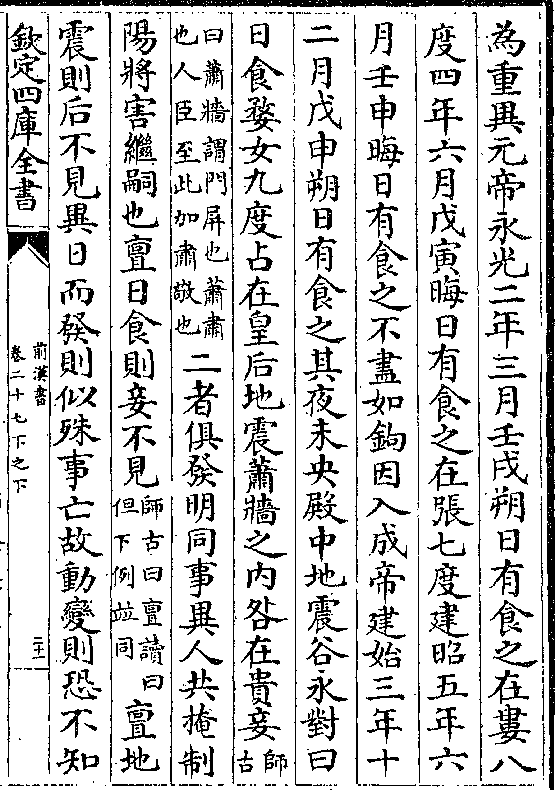 為重異元帝永光二年三月壬戌朔日有食之在婁八
度四年六月戊寅晦日有食之在張七度建昭五年六
月壬申晦日有食之不盡如鉤因入成帝建始三年十
二月戊申朔日有食之其夜未央殿中地震谷永對曰
日食婺女九度占在皇后地震蕭牆之内咎在貴妾師古
曰蕭牆謂門屏也蕭肅也人臣至此加肅敬也二者俱發明同事異人共掩制
陽將害繼嗣也亶日食則妾不見師古曰亶讀曰但下例並同亶地
震則后不見異日而發則似殊事亡故動變則恐不知
欽定四庫全書
前漢書
卷二十七下之下
二十一